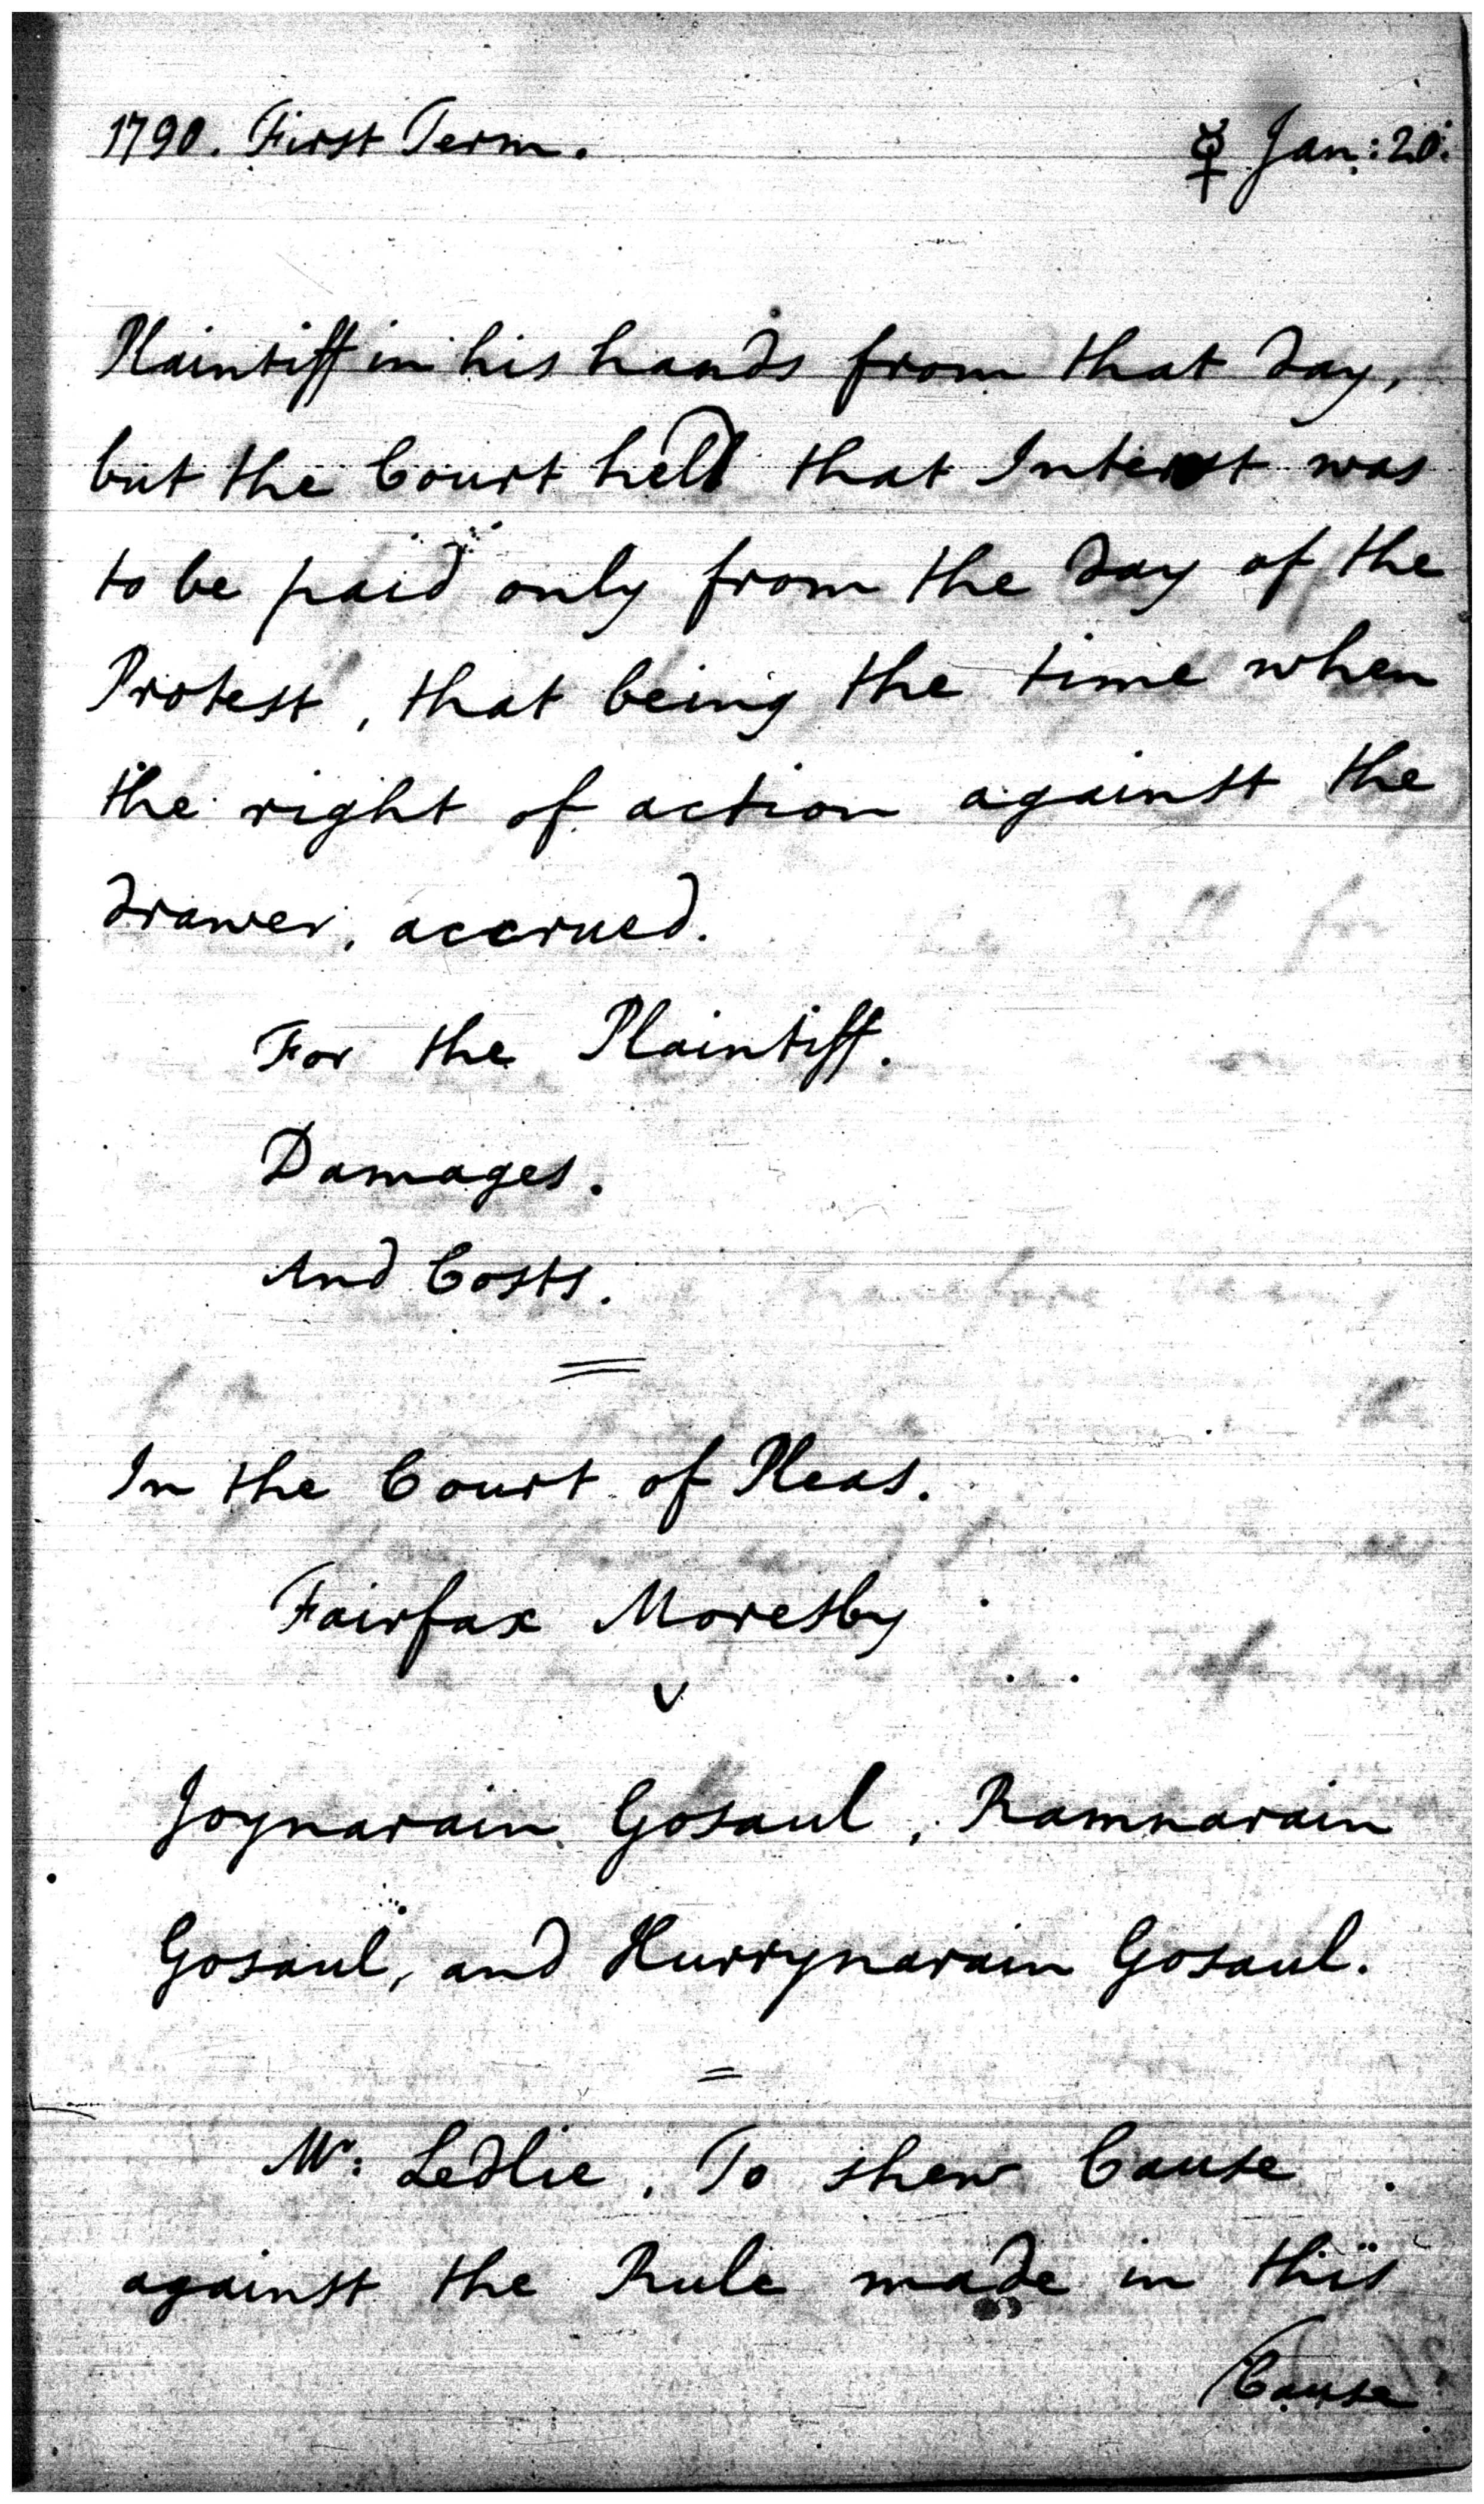 1790. First Term. ☿ Jan: 20:
Plaintiff in his hands from that day,
but the Court held that Interest was
to be paid only from the day of the
Protest, that being the time when
the right of action against the
drawer, accrued.
For the Plaintiff.
Damages.
And Costs.
In the Court of Pleas.
Fairfax Moresby
v
Joynarain Gosaul, Ramnarain
Gosaul, and Hurrynarain Gosaul.
Mr: Ledlie, To shew Cause
against the Rule made in this
Cause